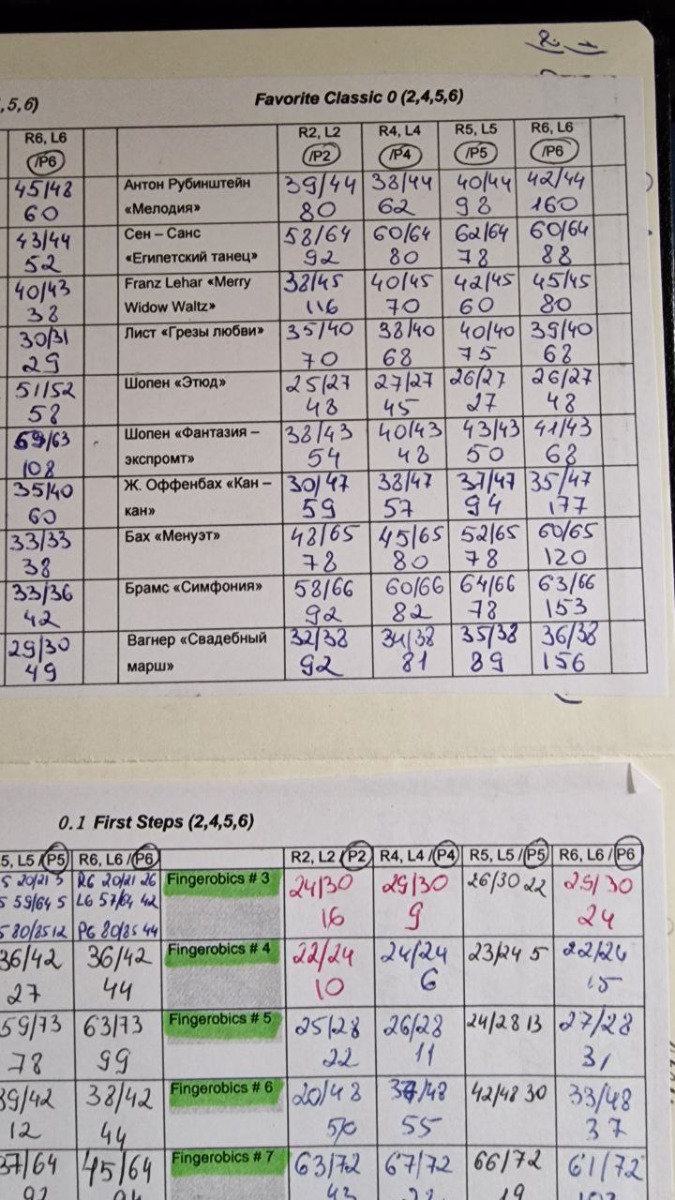 ,5,6)
Favorite Classic 0 (2,4,5,6)
R6, L6 R2, L2 R4, L4 R5, L5 R6, L6
/P6 /P2 /P4 /P5 /P6
45/48 Антон Рубинштейн 39/44 38/44 40/44 42/44
60 «Мелодия» 80 62 98 160
43/44 Сен – Санс 58/64 60/64 62/64 60/64
52 «Египетский танец» 92 80 78 88
40/43 Franz Lehar «Merry 38/45 40/45 42/45 45/45
38 Widow Waltz» 116 70 60 80
30/31 Лист «Грезы любви» 35/40 38/40 40/40 39/40
29 70 68 75 68
51/52 Шопен «Этюд» 25/27 27/27 26/27 26/27
58 48 45 27 48
59/63 Шопен «Фантазия – 38/43 40/43 43/43 41/43
108 экспромт» 54 48 50 68
35/40 Ж. Оффенбах «Кан – 30/47 38/47 37/47 35/47
60 кан» 59 57 94 177
33/33 Бах «Менуэт» 48/65 45/65 52/65 60/65
38 78 80 78 120
33/36 Брамс «Симфония» 58/66 60/66 64/66 63/66
42 92 82 78 153
29/30 Вагнер «Свадебный 32/38 34/38 35/38 36/38
49 марш» 92 81 89 156
0.1 First Steps (2,4,5,6)
5, L5 /P5 R6, L6 /P6 R2, L2 /P2 R4, L4 /P4 R5, L5 /P5 R6, L6 /P6
5 20/21 3 R6 20/21 26 Fingerobics # 3 24/30 29/30 26/30 22 29/30
5 59/64 5 L6 57/64 42 16 9 24
5 80/85 12 P6 80/85 44
36/42 36/42 Fingerobics # 4 22/24 24/24 23/24 5 22/24
27 44 10 6 15
59/73 63/73 Fingerobics # 5 25/28 26/28 24/28 13 27/28
78 99 22 11 31
39/42 38/42 Fingerobics # 6 20/48 37/48 42/48 30 33/48
12 44 50 55 37
37/64 45/64 Fingerobics # 7 63/72 67/72 66/72 61/72
43 19